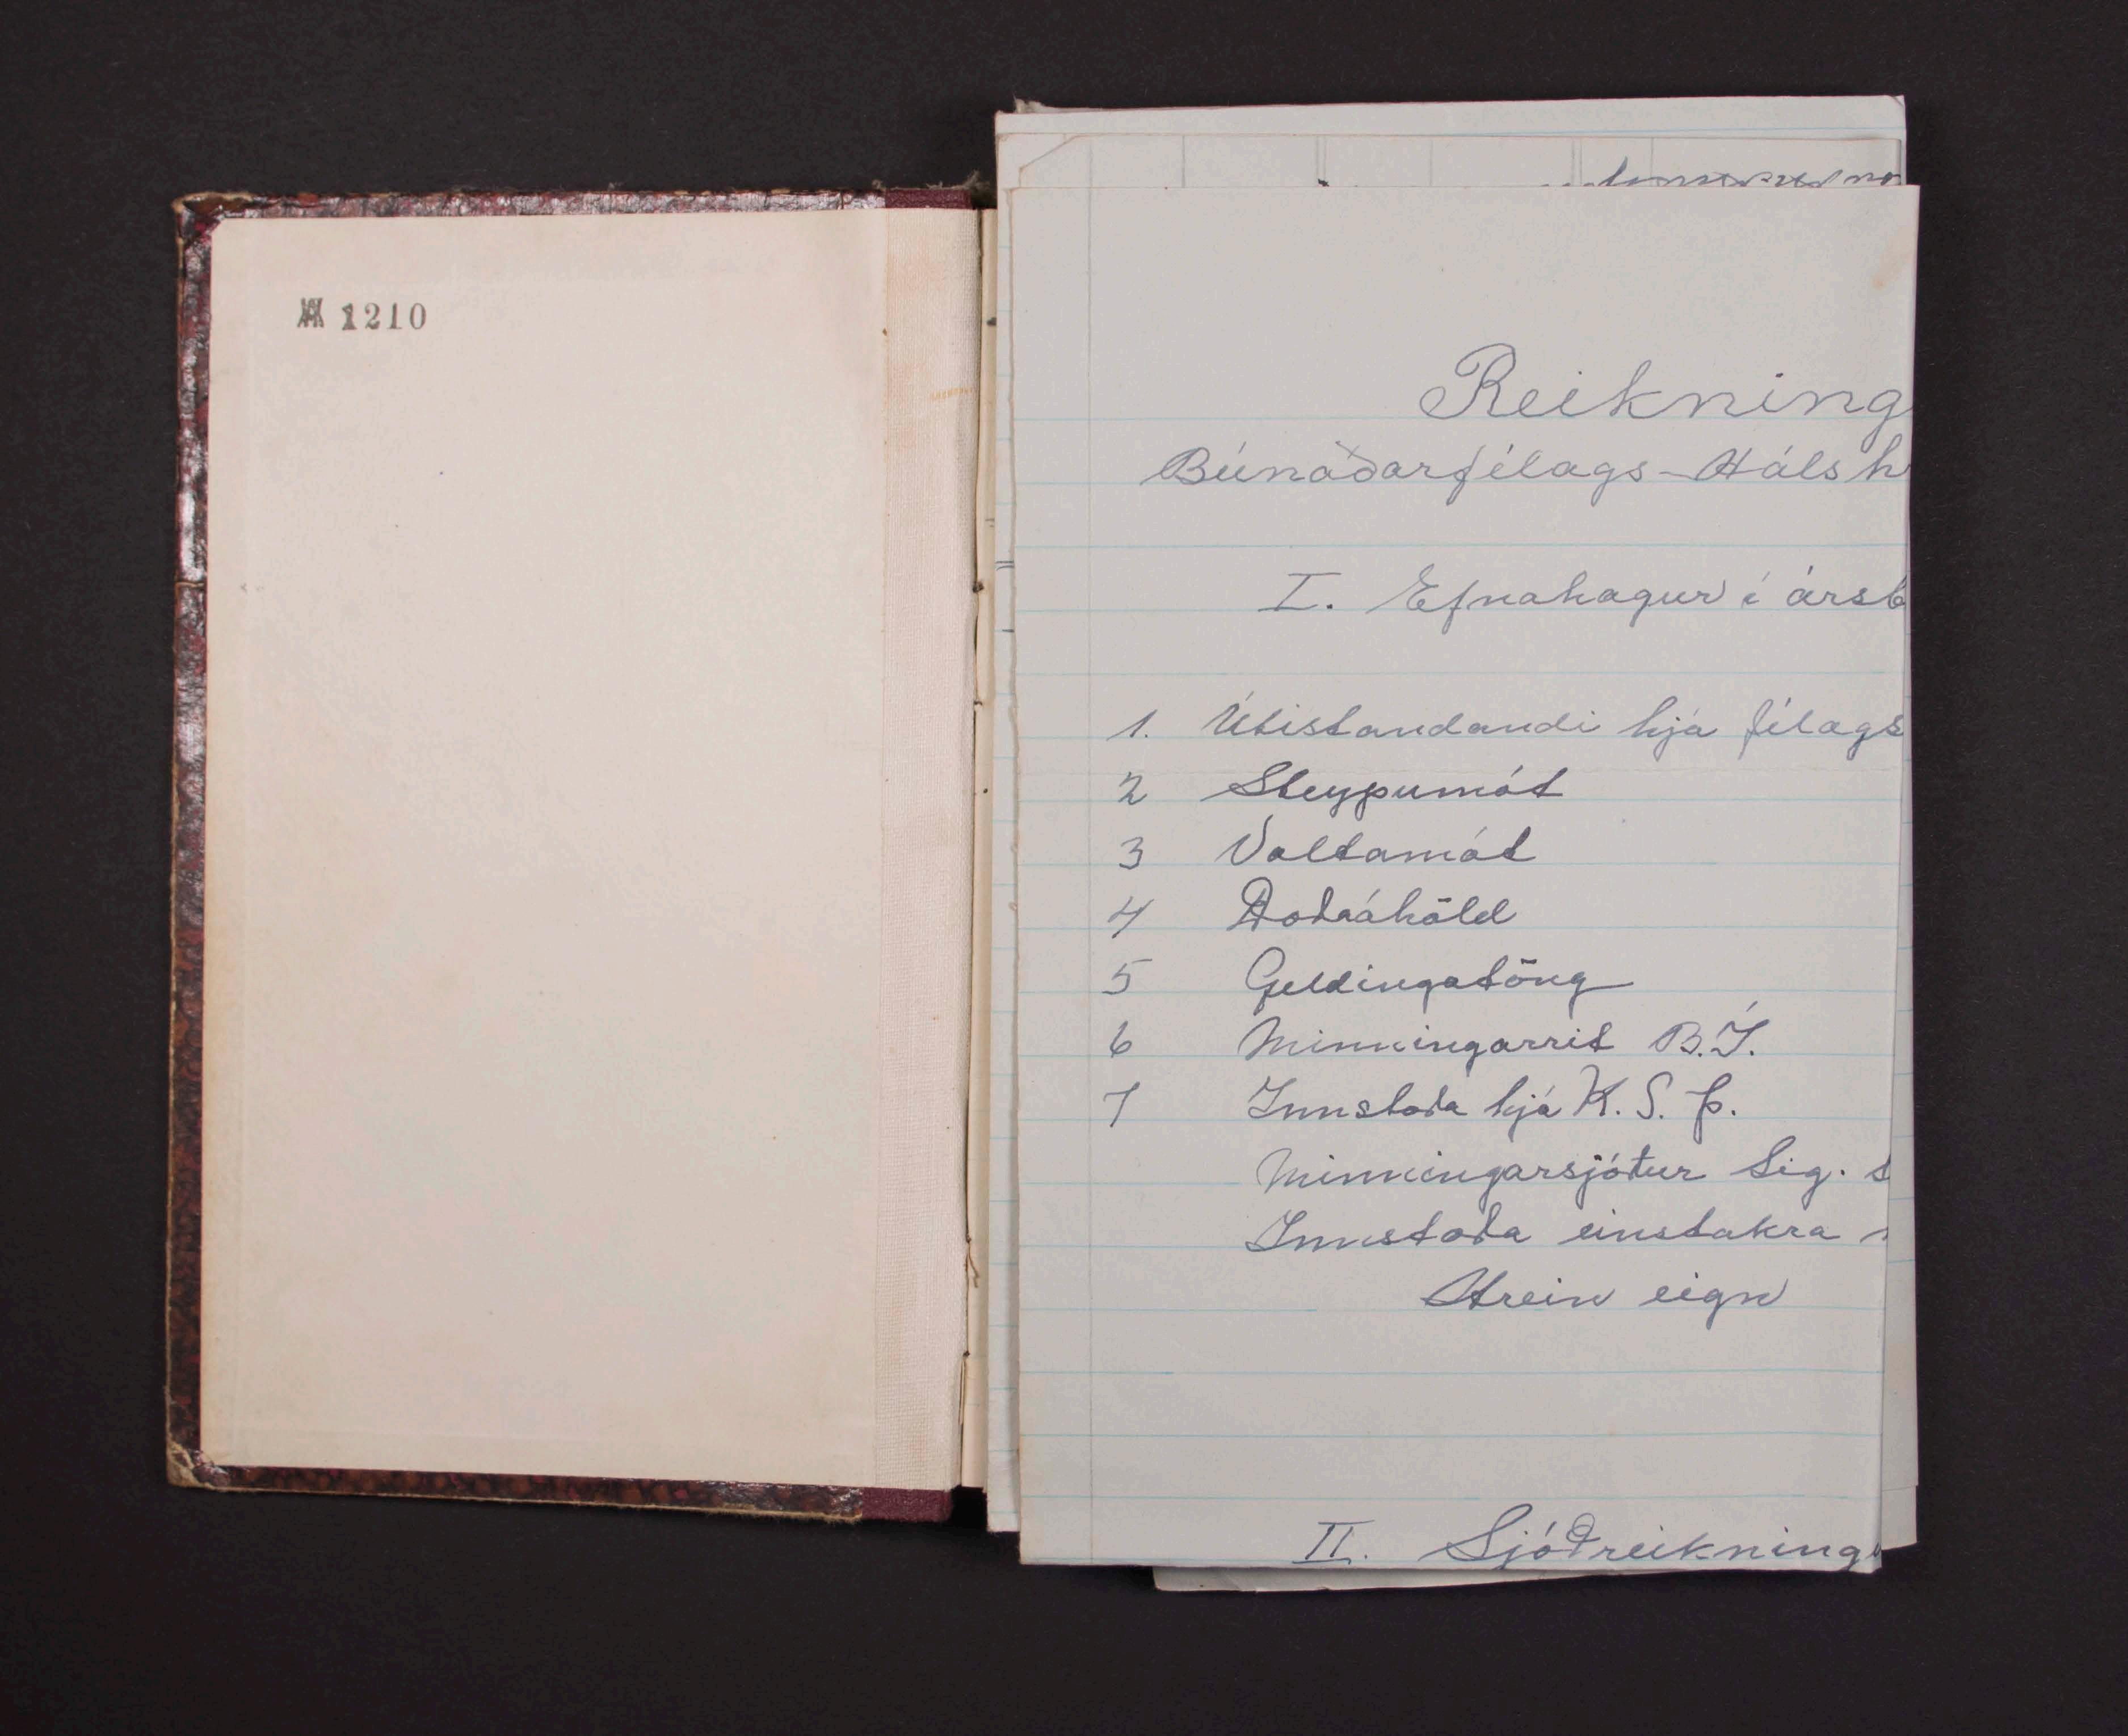 1210
Reikning
Búnaðarfélags-Hálsh
I. Efnahagur í ársb
1. Útistandandi hjá félags
2 Steypumót
3 Valtamót
4 Doðaáhöld
5 Geldingatöng
6 Minningarrit B.Í.
7 Innstoða hjá K. S. Þ.
Minningarsjóður Sig. S
Innstoða einstakra
Hrein eign
II. Sjóðreikning